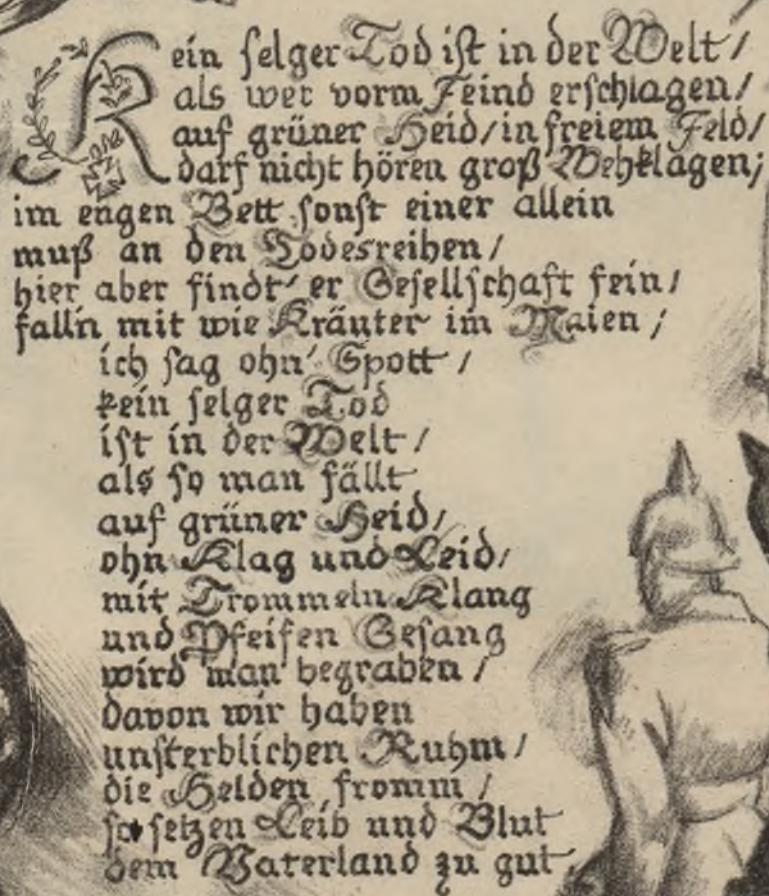 Kein selger Tod ist in der Welt/
als wer vorm Feind erschlagen/
auf grüner Heid/in freiem Feld/
darf nicht hören groß Wehklagen;
im engen Bett sonst einer allein
muß an den Todesreihen/
hier aber findt' er Gesellschaft fein/
fall'n mit wie Kräuter im Maien;
ich sag ohn' Spott/
kein selger Tod
ist in der Welt/
als so man fällt
auf grüner Heid/
ohn Klag und Leid/
mit Trommeln Klang
und Pfeifen Gesang
wird man begraben/
davon wir haben
unsterblichen Ruhm/
die Helden fromm/
so setzen Leib und Blut
dem Vaterland zu gut